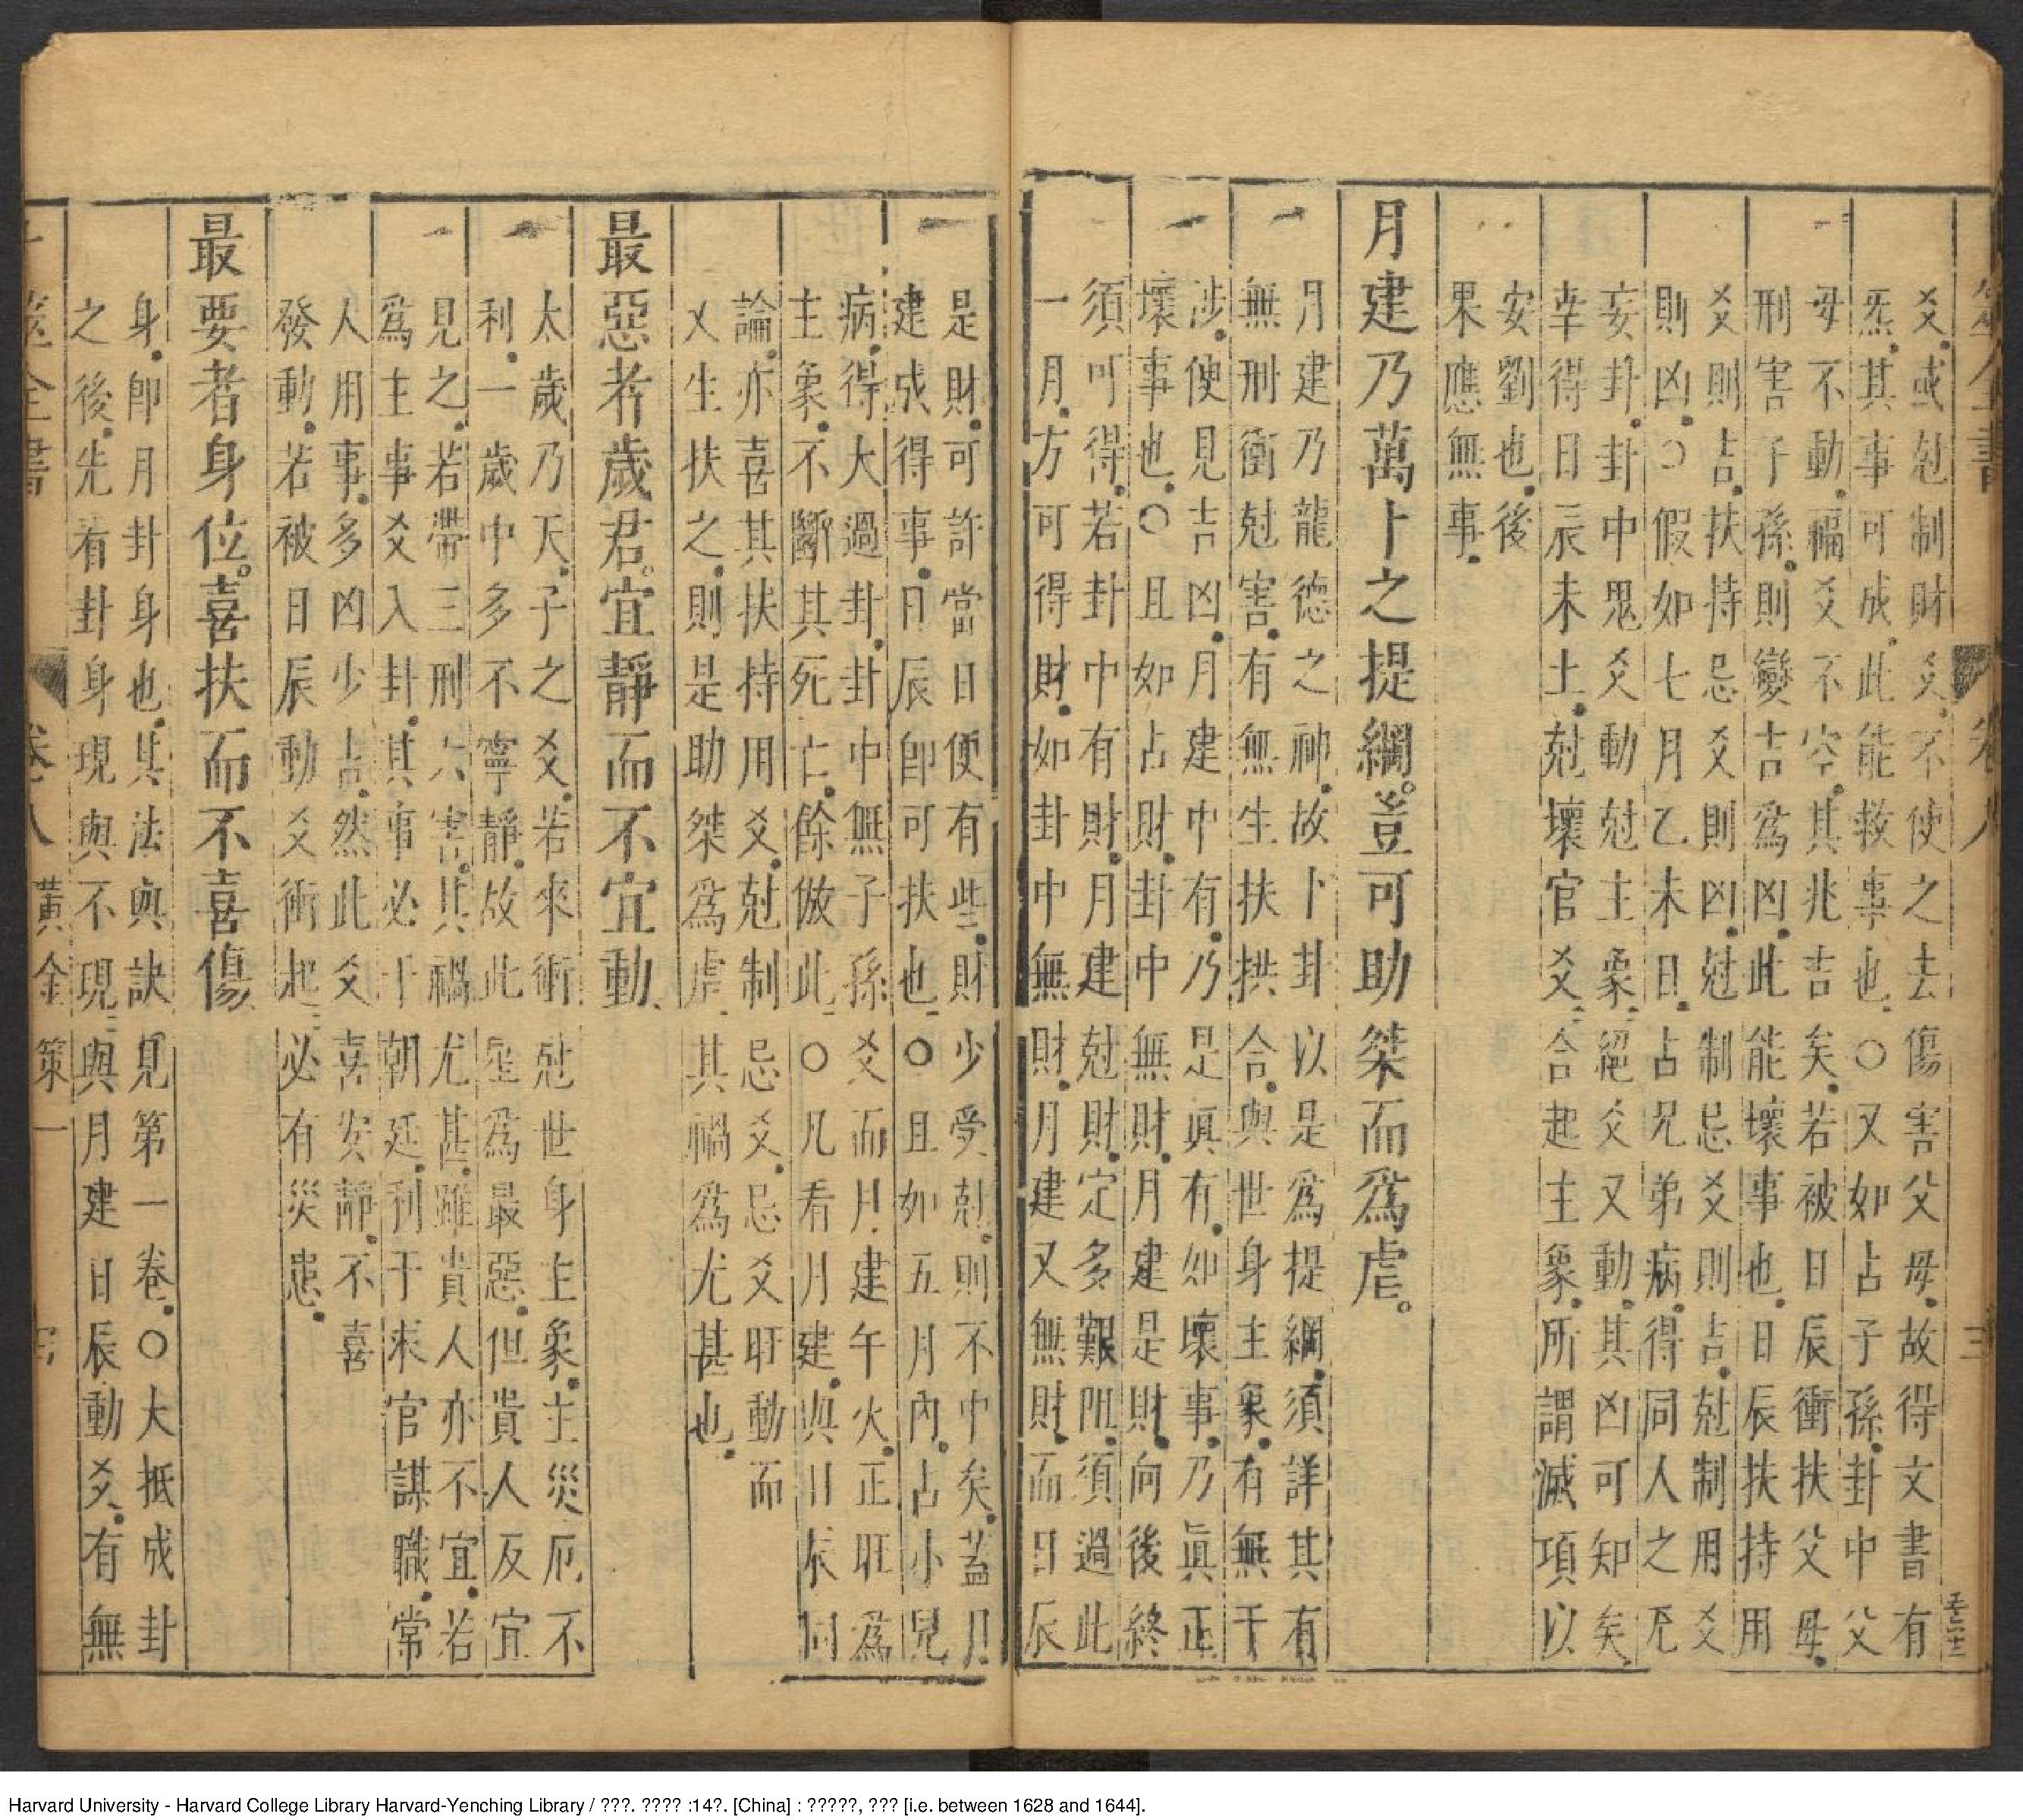 爻或尅制財爻不使之去傷害父母故得文書有
炁其事可成此能救事也○又如占子孫卦中父
母不動福爻不空其兆吉矣若被日辰衝扶父母
刑害子孫則變吉爲凶此能壞事也日辰扶持用
爻則吉扶持忌爻則凶尅制忌爻則吉尅制用爻
則凶○假如七月乙未日占兄弟病得同人之无
妄卦卦中鬼爻動尅主象絕爻又動其凶可知矣
幸得日辰未土尅壞官爻合起主象所謂滅項以
安劉也後
果應無事
月建乃萬卜之提綱豈可助桀而爲虐
月建乃龍德之神故卜卦以是爲提綱須詳其有
無刑衝尅害有無生扶拱合與世身主象有無干
涉便見吉凶月建中有乃是眞有如壞事乃眞正
壞事也○且如占財卦中無財月建是財向後終
須可得若卦中有財月建尅財定多艱阻須過此
一月方可得財如卦中無財月建又無財而日辰
是財可許當日便有些財少受尅則不中矣蓋月
建成得事日辰卽可扶也○且如五月內占小兒
病得大過卦卦中無子孫爻而月建午火正旺爲
主象不斷其死亡餘倣此○凡看月建與日辰同
論亦喜其扶持用爻尅制忌爻忌爻旺動而
又生扶之則是助桀爲虐其禍爲尤甚也
最惡者歲君宜靜而不宜動
太歲乃天子之爻若來衝尅世身主象主災厄不
利一歲中多不寧靜故此星爲最惡但貴人反宜
見之若帶三刑六害其禍尤甚雖貴人亦不宜若
爲主事爻入卦其事必干朝廷利于求官謀職常
人用事多凶少吉然此爻喜安靜不喜
發動若被日辰動爻衝起必有災患
最要者身位喜扶而不喜傷
身卽月卦身也其法與訣見第一卷○大抵成卦
之後先看卦身現與不現與月建日辰動爻有無
卷八 黃金策一